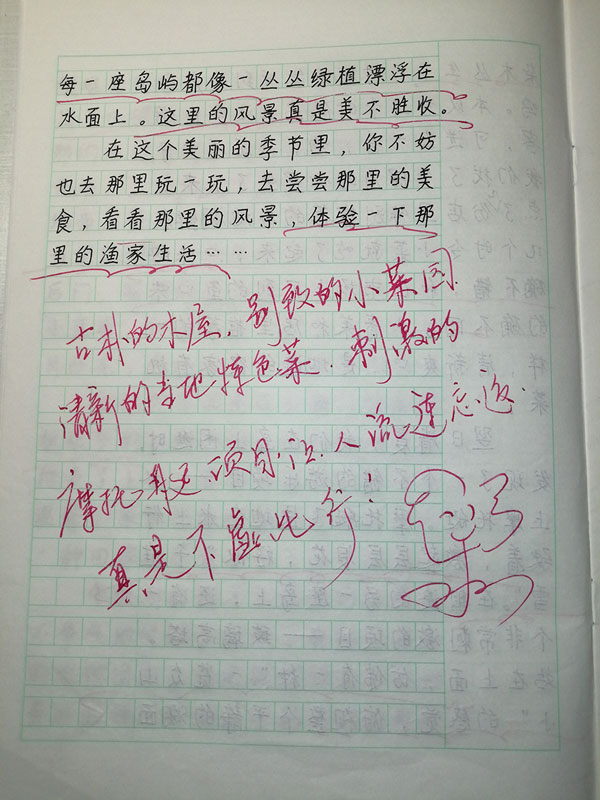 每一座岛屿都像一丛丛绿植漂浮在
水面上。这里的风景真是美不胜收。
在这个美丽的季节里，你不妨
也去那里玩一玩，去尝尝那里的美
食，看看那里的风景，体验一下那
里的渔家生活……
古朴的木屋，别致的小菜园
清新的本地特色菜，刺激的
摩托艇项目，让人流连忘返.
真是不虚此行！